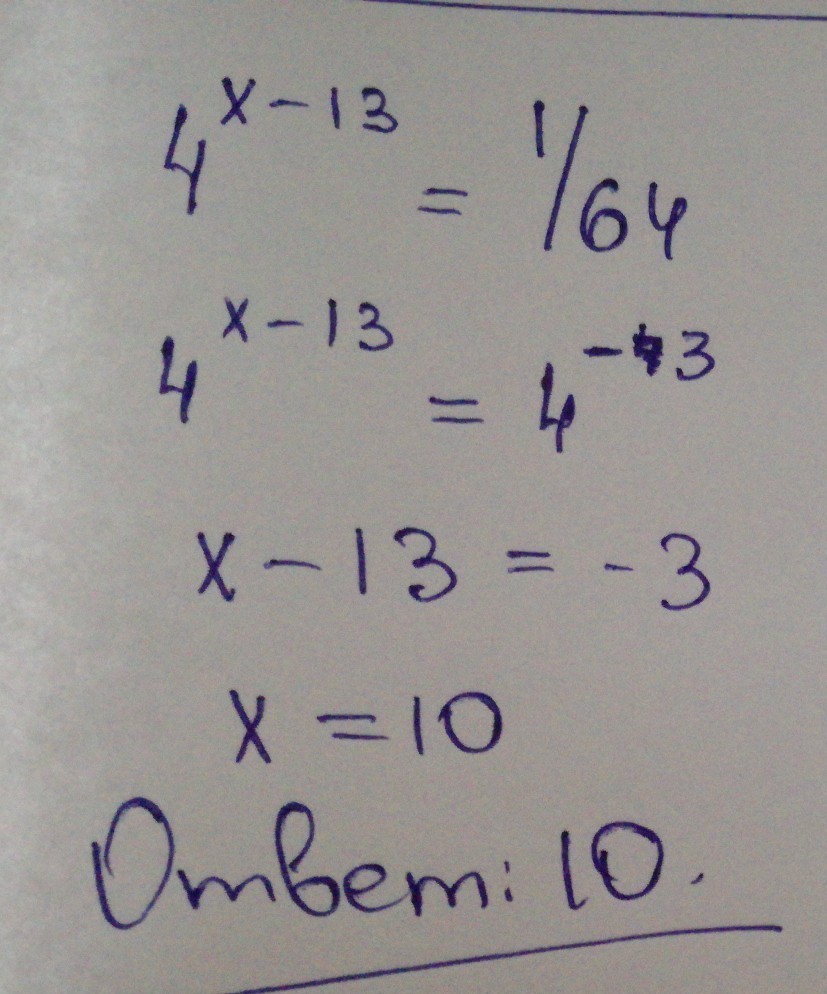 4^{x-13} = 1/64
4^{x-13} = 4^{-3}
x - 13 = -3
x = 10
Ответ: 10.